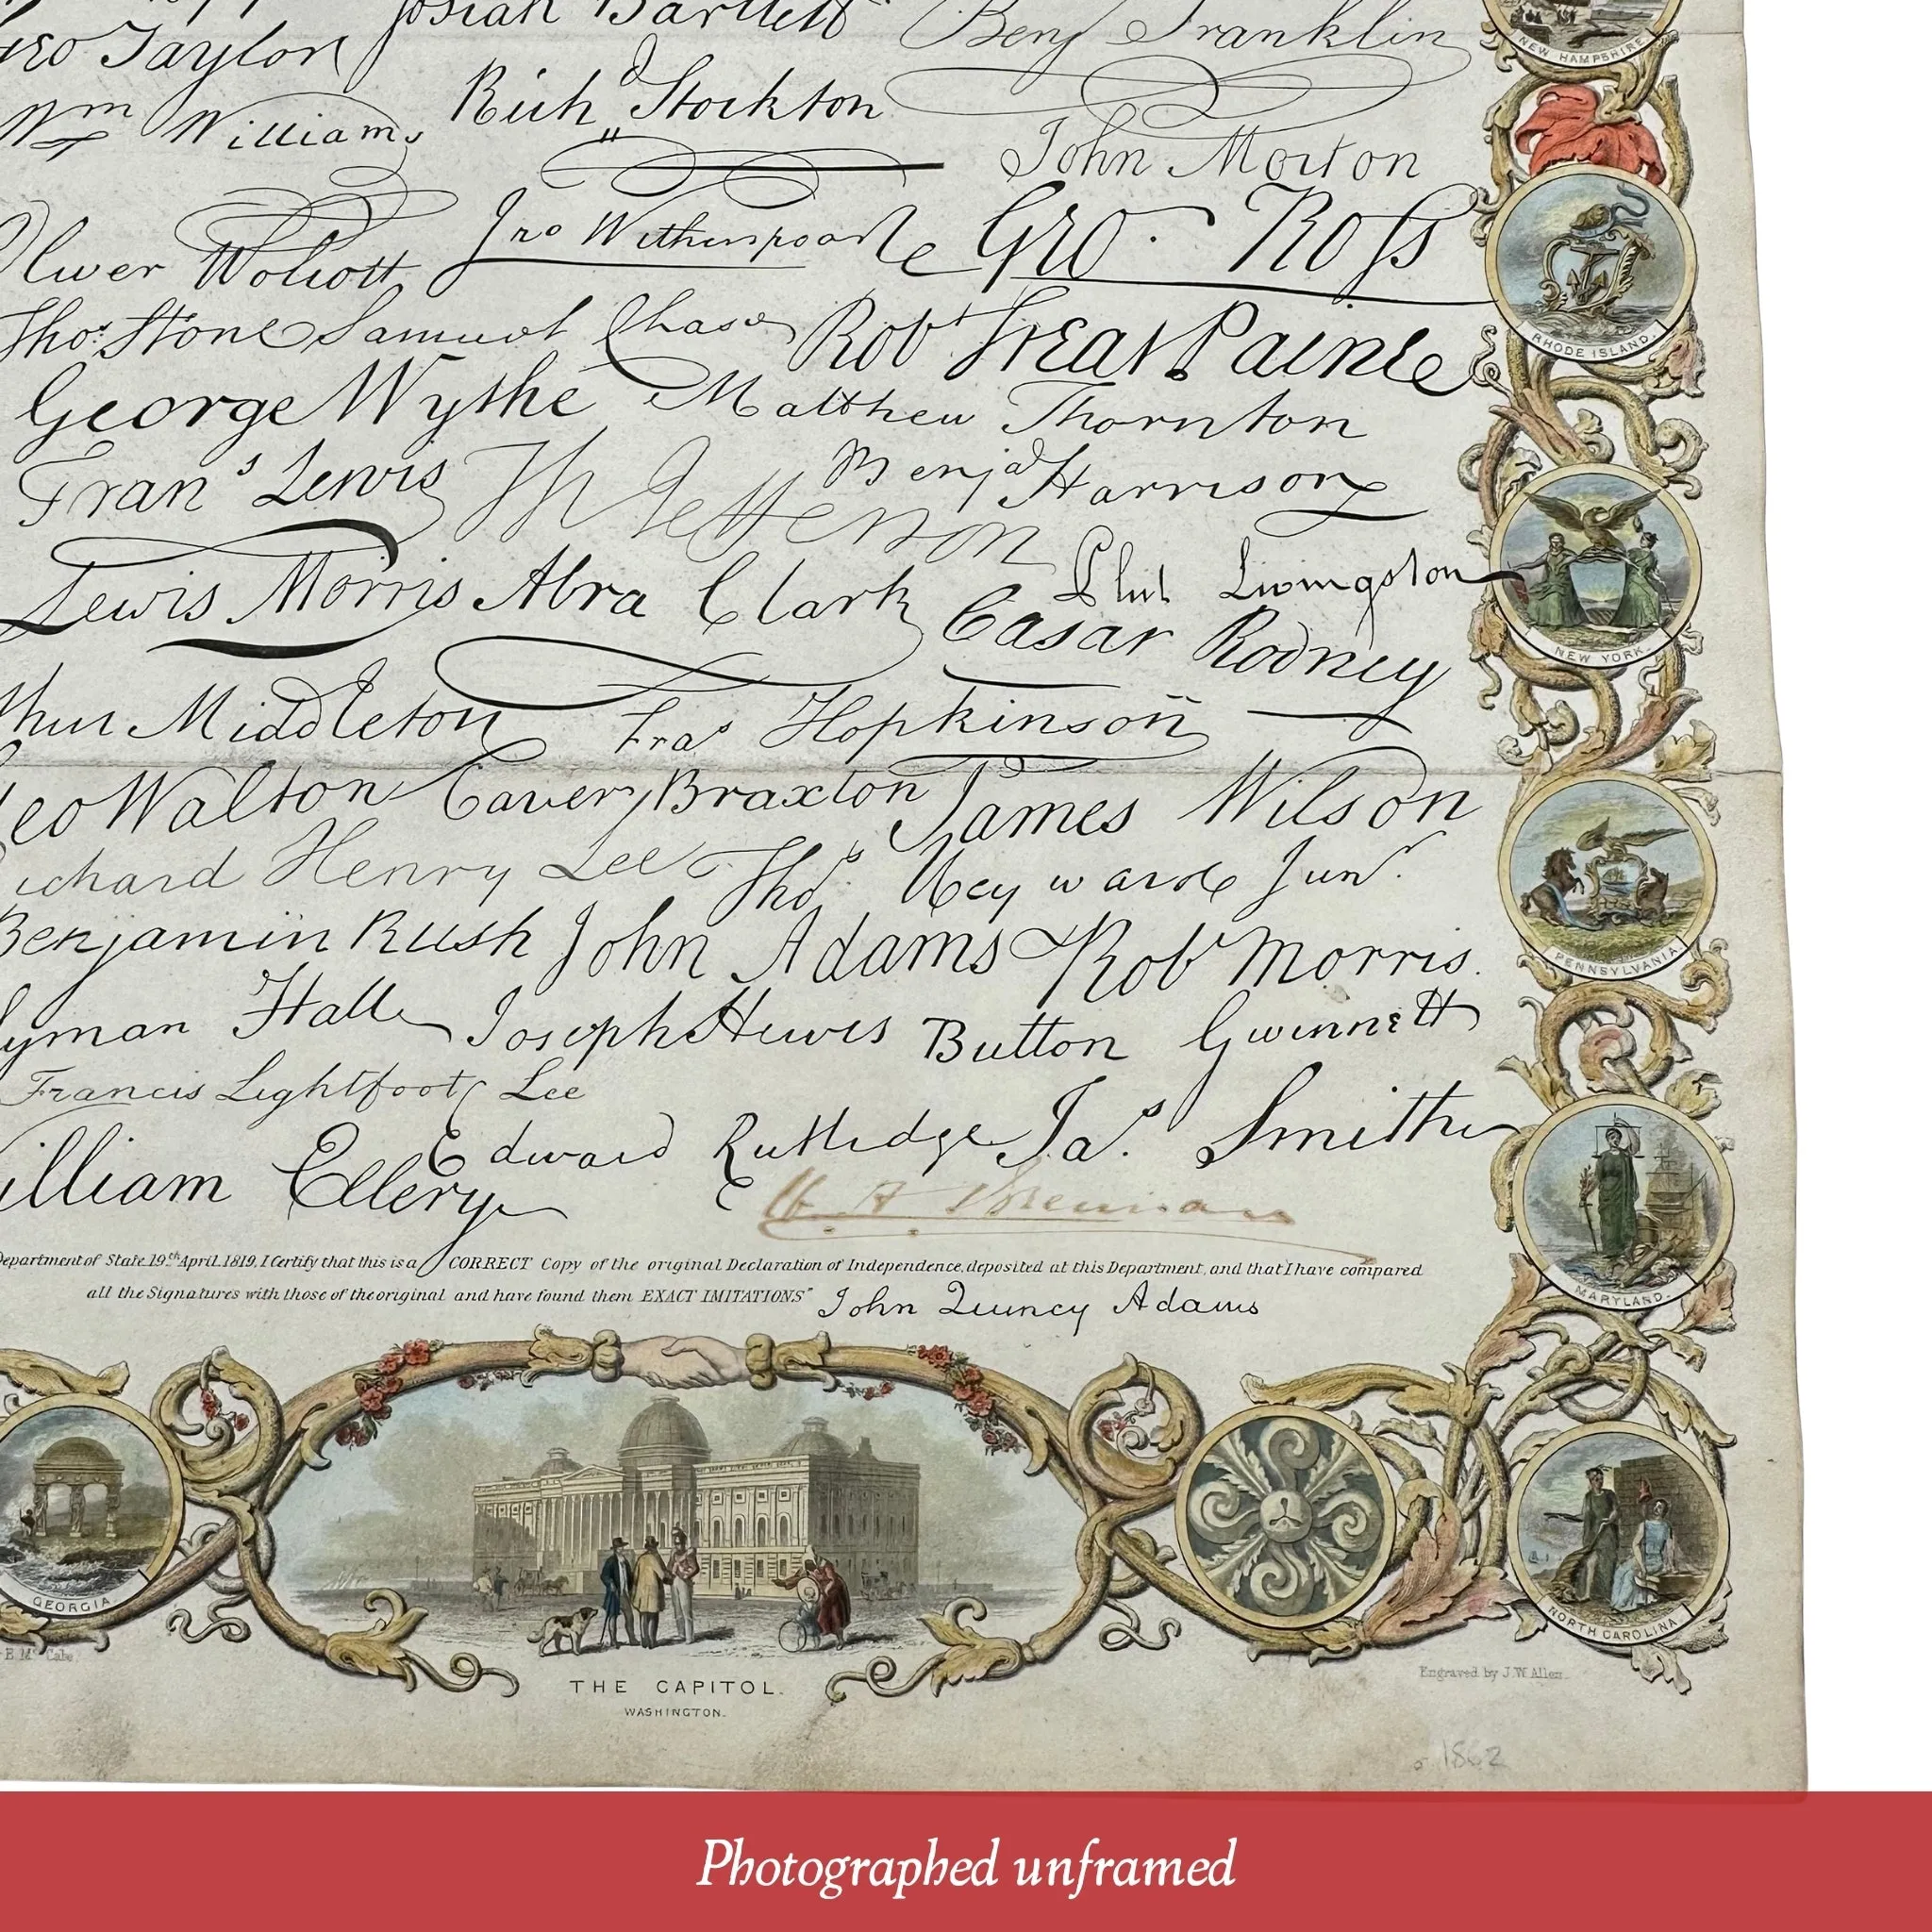 Josiah Bartlett Benj Franklin
Geo Taylor
Wm Williams Richd Stockton
John Morton
Oliver Wolcott Jno Witherspoon Geo. Ross
Thos. Stone Samuel Chase Robt Treat Paine
George Wythe Matthew Thornton
Frans Lewis Th Jefferson Benja Harrison
Lewis Morris Abra Clark Phil Livingston
Casar Rodney
Middleton Fras Hopkinson
Geo Walton Carter Braxton James Wilson
Richard Henry Lee Thos. Heyward Junr.
Benjamin Rush John Adams Robt Morris.
Lyman Hall Joseph Hewes Button Gwinnett
Francis Lightfoot Lee
William Ellery Edward Rutledge Jas. Smith
Department of State 19th April 1819, I Certify that this is a CORRECT Copy of the original Declaration of Independence, deposited at this Department, and that I have compared
all the Signatures with those of the original and have found them EXACT IMITATIONS" John Quincy Adams
NEW HAMPSHIRE.
RHODE ISLAND.
NEW YORK.
PENNSYLVANIA.
MARYLAND.
NORTH CAROLINA
GEORGIA.
THE CAPITOL.
WASHINGTON.
Mc Cabe
Engraved by J. W. Allen.
1862
Photographed unframed